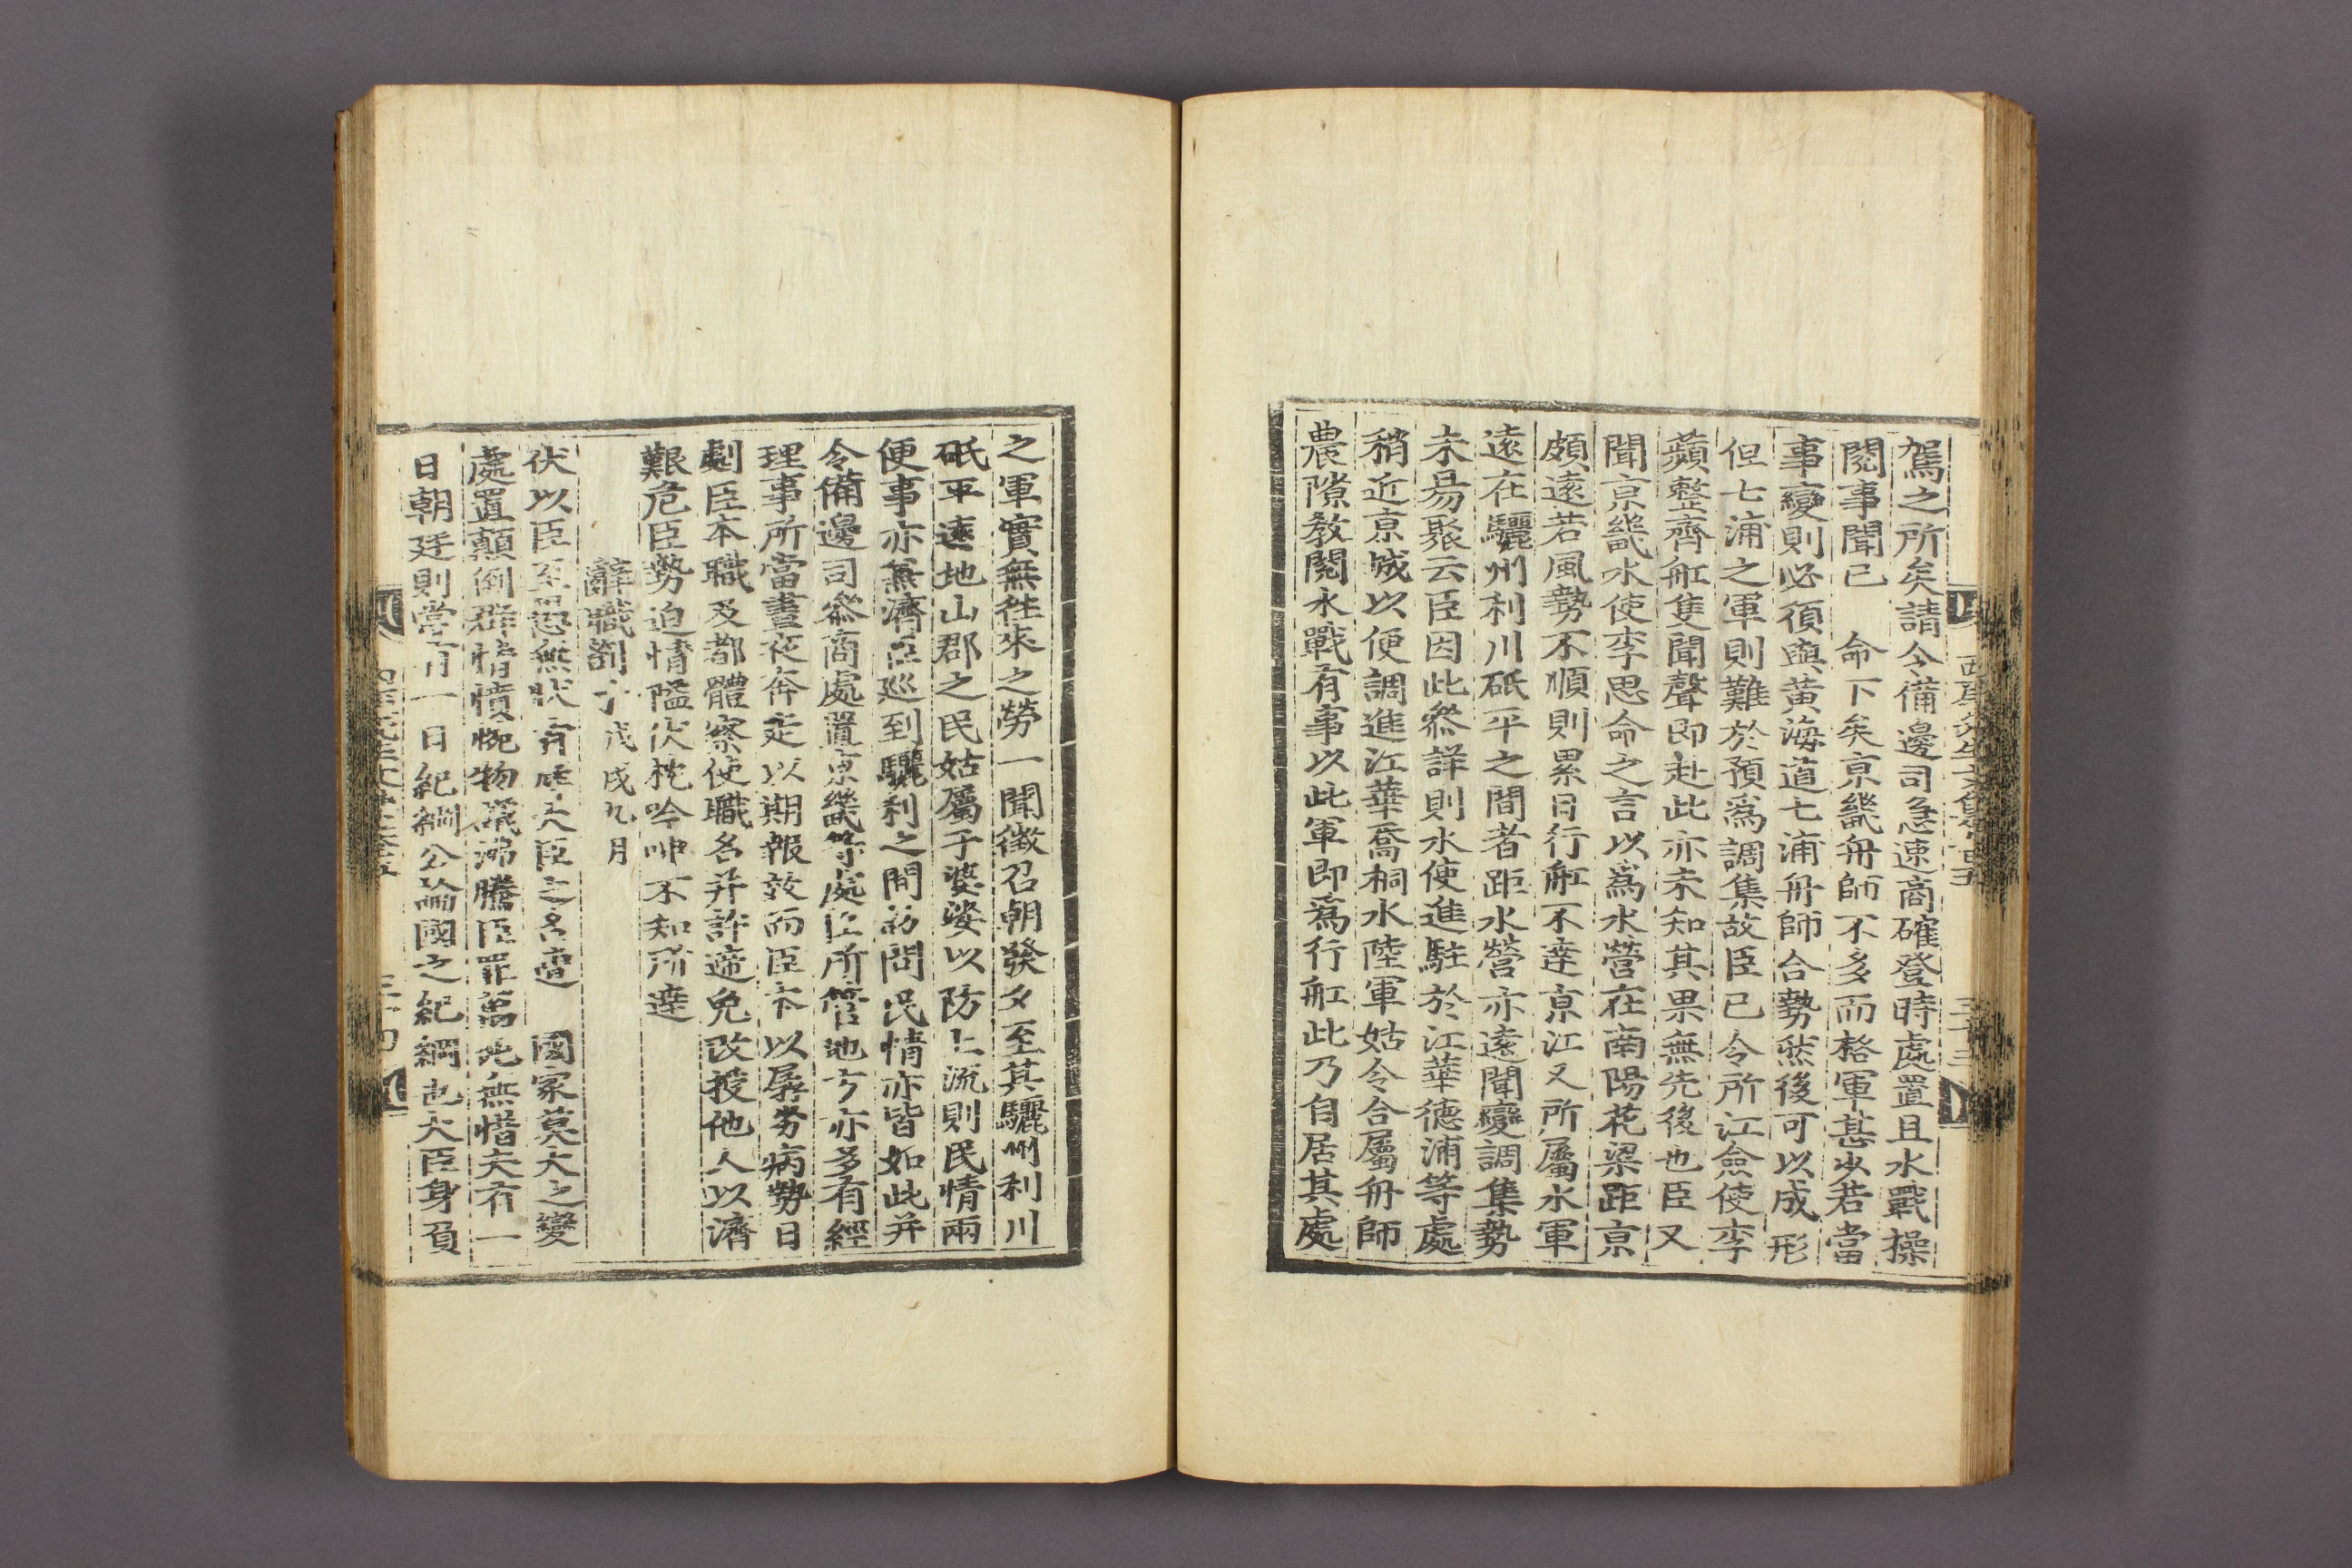 駕之所矣請令備邊司急速商確登時處置且水戰操
閱事聞已 命下矣京畿舟師不多而格軍甚少若當
事變則必須與黃海道七浦舟師合勢然後可以成形
但七浦之軍則難於預爲調集故臣已令所江僉使李
蘋整齊舡隻聞聲即赴此亦未知其果無先後也臣又
聞京畿水使李思命之言以爲水營在南陽花梁距京
頗遠若風勢不順則累日行舡不達京江又所屬水軍
遠在驪州利川砥平之間者距水營亦遠聞變調集勢
未易聚云臣因此叅詳則水使進駐於江華德浦等處
稍近京城以便調進江華喬桐水陸軍姑令合屬舟師
農隙敎閱水戰有事以此軍即爲行舡此乃自居其處
之軍實無徃來之勞一聞徵召朝發夕至其驪州利川
砥平遠地山郡之民姑屬于婆娑以防上流則民情兩
便事亦兼濟臣巡到驪利之間訪問民情亦皆如此并
令備邊司叅商處置京畿等處臣所管地方亦多有經
理事所當晝夜奔走以期報效而臣本以孱劣病勢日
劇臣本職及都體察使職名并許遞免改授他人以濟
艱危臣勢迫情隘伏枕吟呻不知所達
辭職劄子 戊戌九月
伏以臣至愚無狀 大臣之名 國家莫大之變
處置顚倒群情憤惋物議沸騰臣罪萬死無惜夫有一
日朝廷則當有一日紀綱公論國之紀綱也大臣身負
西厓先生文集卷之五 三十三
三十四